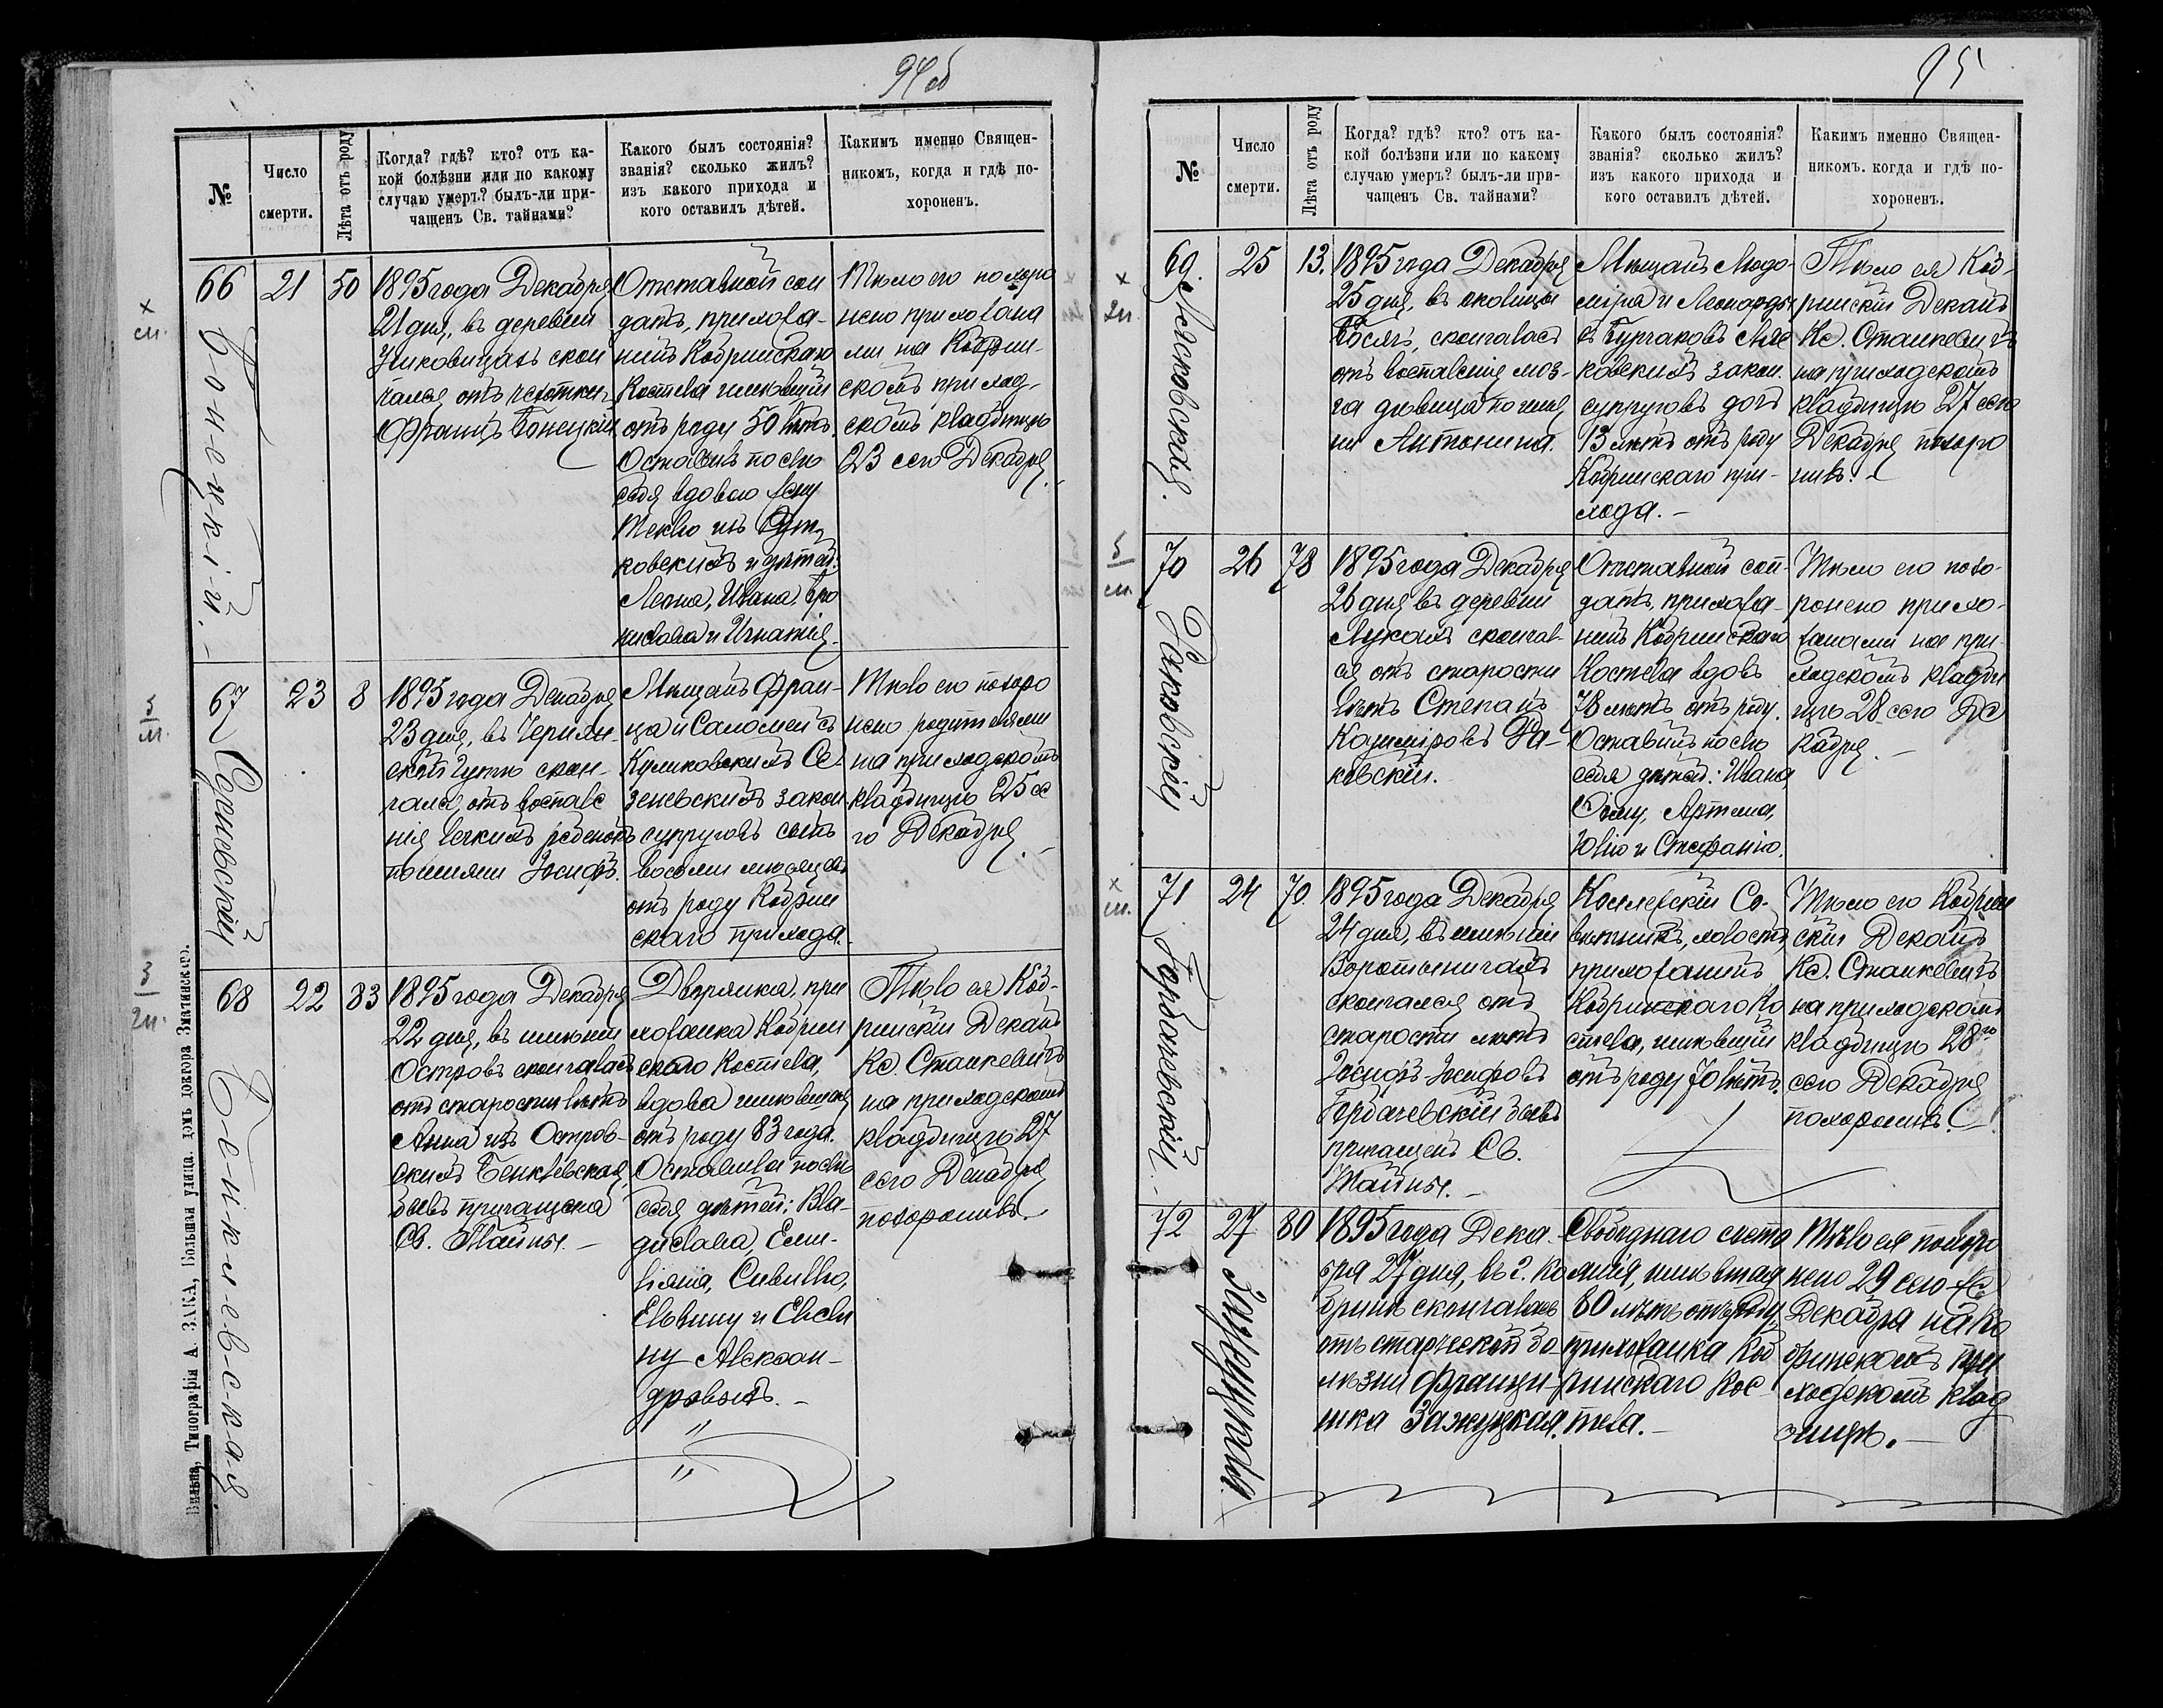 94об
№
Число
смерти.
Лѣта отъ роду
Когда? гдѣ? кто? отъ ка-
кой болѣзни или по какому
случаю умеръ? былъ-ли при-
чащенъ Св. тайнами?
Какого былъ состоянія?
званія? сколько жилъ?
изъ какого прихода и
кого оставилъ дѣтей.
Какимъ именно Священ-
никомъ, когда и гдѣ по-
хороненъ.
66
Бонецкій.
21
50
1895 года Декабря
21 дня, въ деревни
скон
чался отъ чахотки
Францъ Бонецкій
Отставной сол
датъ, прихожа-
нинъ Кобринскаго
Костела имѣвшій
отъ роду 50 лѣтъ.
Оставилъ послѣ
себя вдовою жену
Теклю изъ
ковскихъ и дѣтей:
Леона, Ивана, Бро
нислава и Игнатія.
Тѣло его похоро
нено прихожана
ми на Кобрин-
скомъ приход-
скомъ кладбищѣ
23 сего Декабря.
67
23
8
1895 года Декабря
23 дня, въ Черня-
ской Гутѣ скон-
чался отъ воспале
нія легкихъ ребенокъ
по имени Іосифъ.
Мѣщанъ Фран-
ца и Саломеи съ
Куликовскихъ Се
зеневскихъ закон
супруговъ сынъ
восьми мѣсяцевъ
отъ роду Кобрин
скаго прихода.
Тѣло его похоро
нено родителями
на приходскомъ
кладбищѣ 25 се
го Декабря.
68
Бенклевская.
22
83
1895 года Декабря
22 дня, въ имѣніи
Островъ скончалась
отъ старости лѣтъ
Анна изъ Остров-
скихъ Бенклевская
бывъ причащена
Св. Тайны.
Дворянка, при
хожанка Кобрин
скаго Костела,
вдова имѣвшая
отъ роду 83 года.
Оставила послѣ
себя дѣтей: Вла-
дислава, Еми-
ліяна, Сивиллю,
Елвину и Евели
ну Алексан-
дровыхъ.
"
"
Тѣло ея Коб-
ринскій Деканъ
Кс. Станкевичъ
на приходскомъ
кладбищѣ 27
сего Декабря
похоронилъ.
Вильна, Типографія А. ЗАКА, Большая улица, домъ доктора Змачинскаго.
95
№
Число
смерти.
Лѣта отъ роду
Когда? гдѣ? кто? отъ ка-
кой болѣзни или по какому
случаю умеръ? былъ-ли при-
чащенъ Св. тайнами?
Какого былъ состоянія?
званія? сколько жилъ?
изъ какого прихода и
кого оставилъ дѣтей.
Какимъ именно Священ-
никомъ. когда и гдѣ по-
хороненъ.
69.
Лясковская.
25
13.
1895 года Декабря
25 дня, въ околицы
Босячъ, скончалась
отъ воспаленія моз-
га дѣвица по име
ни Антонина.
Мѣщанъ Людо-
міра и Леонарды
съ Бурчаковъ Ляс
ковскихъ закон.
супруговъ дочь
13 лѣтъ отъ роду
Кобринскаго при-
хода.
Тѣло ея Коб-
ринскій Деканъ
Кс. Станкевичъ
на приходскомъ
кладбищѣ 27 сего
Декабря похоро
нилъ.
70
Раковскій
26
78
1895 года Декабря
26 дня въ деревни
Лукахъ скончал-
ся отъ старости
лѣтъ Степанъ
Казиміровъ Ра-
ковскій.
Отставной сол-
датъ, прихожа-
нинъ Кобринскаго
Костела вдовъ
78 лѣтъ отъ роду.
Оставилъ послѣ
себя дѣтей: Ивана,
Артема,
Юлію и Стефанію.
Тѣло его похо-
ронено прихо-
жанами на при-
ходскомъ кладби
щѣ 28 сего Де
кабря.
71
Горбачевскій.
24
70.
1895 года Декабря
24 дня, въ имѣніи
скончался отъ
старости лѣтъ
Іосифъ Іосифовъ
Горбачевскій бывъ
причащенъ Св.
Тайны.
Коллежскій Со-
вѣтникъ, холостъ
прихожанинъ
Кобринскаго Ко
стела, имѣвшій
отъ роду 70 лѣтъ.
Тѣло его Кобрин
скій Деканъ
Кс. Станкевичъ
на приходскомъ
кладбищѣ 28го
сего Декабря
похоронилъ.
72
Зажуцкая
27
80
1895 года Дека-
бря 27 дня, въ г. Ко
бринѣ скончалась
отъ старческой бо
лѣзни Франци-
шка Зажуцкая.
имѣвшая
80 лѣтъ отъ роду,
прихожанка Коб
ринскаго Кос-
тела.
Тѣло ея похоро
нено 29 сего же
Декабря на Ко
бринскомъ при
ходскомъ клад
бищѣ.